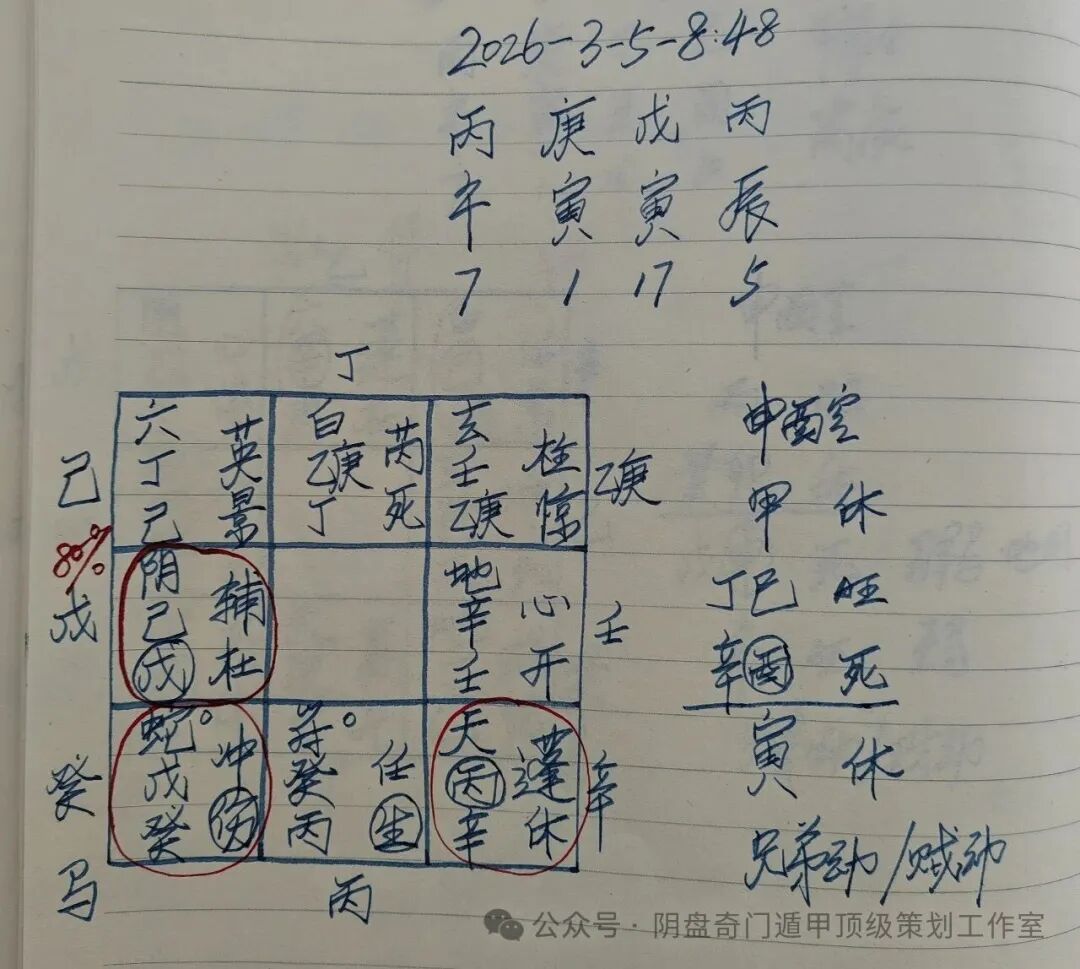 2026-3-5-8:48
丙 庚 戊 丙
午 寅 寅 辰
7 1 17 5
丁
己
80%
戊
癸
马
六 英
丁
己 景
白 芮
乙庚
丁 死
玄 柱
壬
乙庚 惊
乙庚
阴 辅
己
戊 杜
地 心
辛
壬 开
壬
蛇 冲
戊
癸 伤
符 任
癸
丙 生
天 蓬
丙
辛 休
辛
丙
申酉空
甲 休
丁巳 旺
辛酉 死
寅 休
兄弟动/贼动
公众号·阴盘奇门遁甲顶级策划工作室